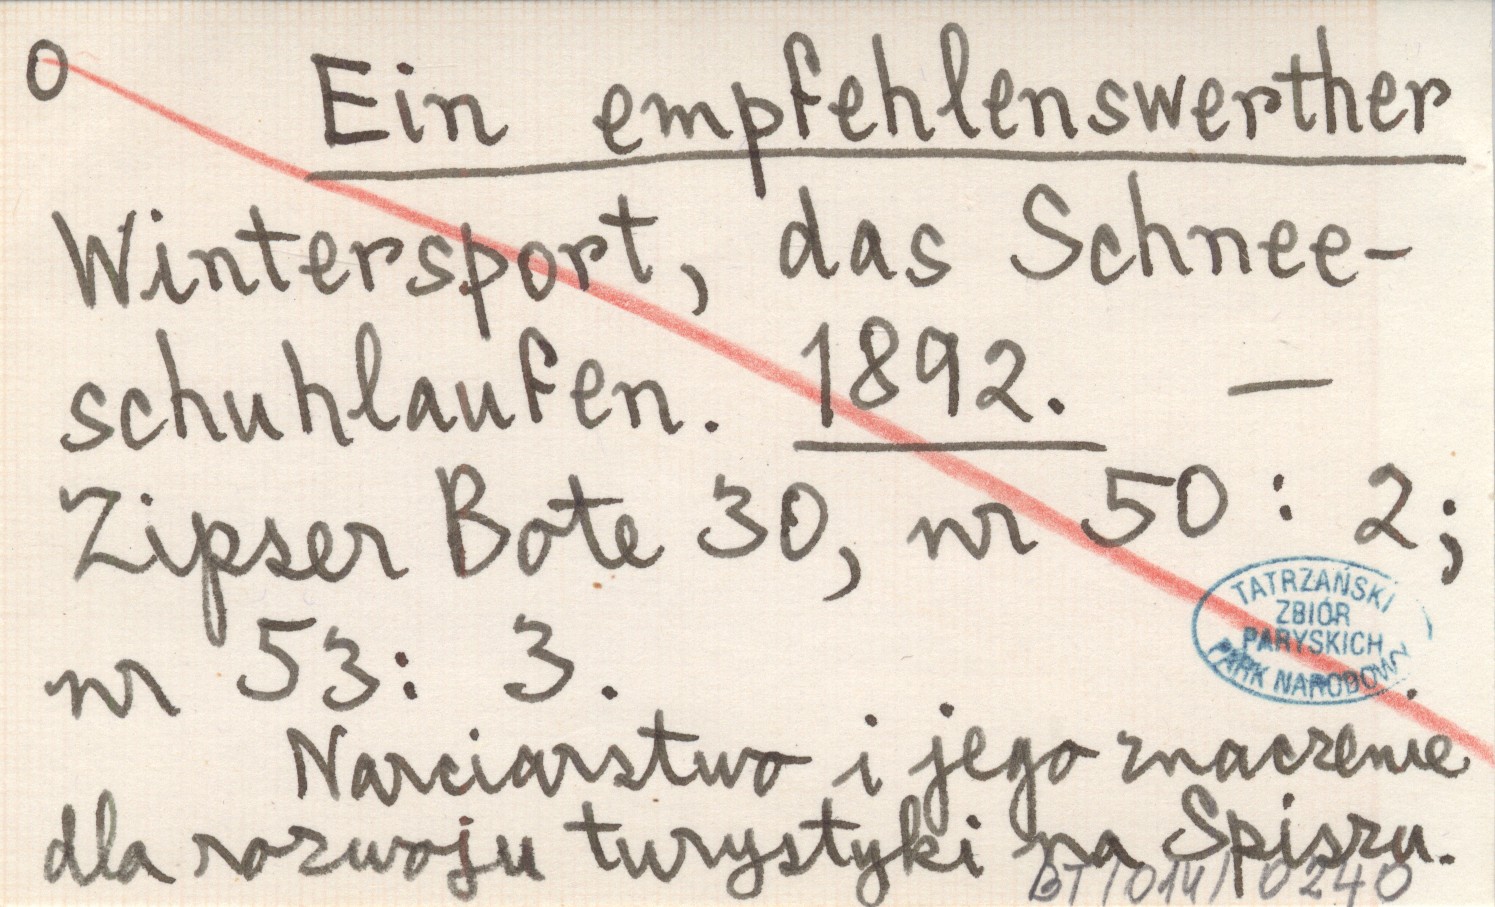 o Ein empfehlenswerther
Wintersport, das Schnee-
schuhlaufen. 1892. —
Zipser Bote 30, nr 50 : 2;
nr 53: 3.
TATRZAŃSKI
ZBIÓR
PARYSKICH
PARK NARODOWY
Narciarstwo i jego znaczenie
dla rozwoju turystyki na Spiszu.
BT/014/0240